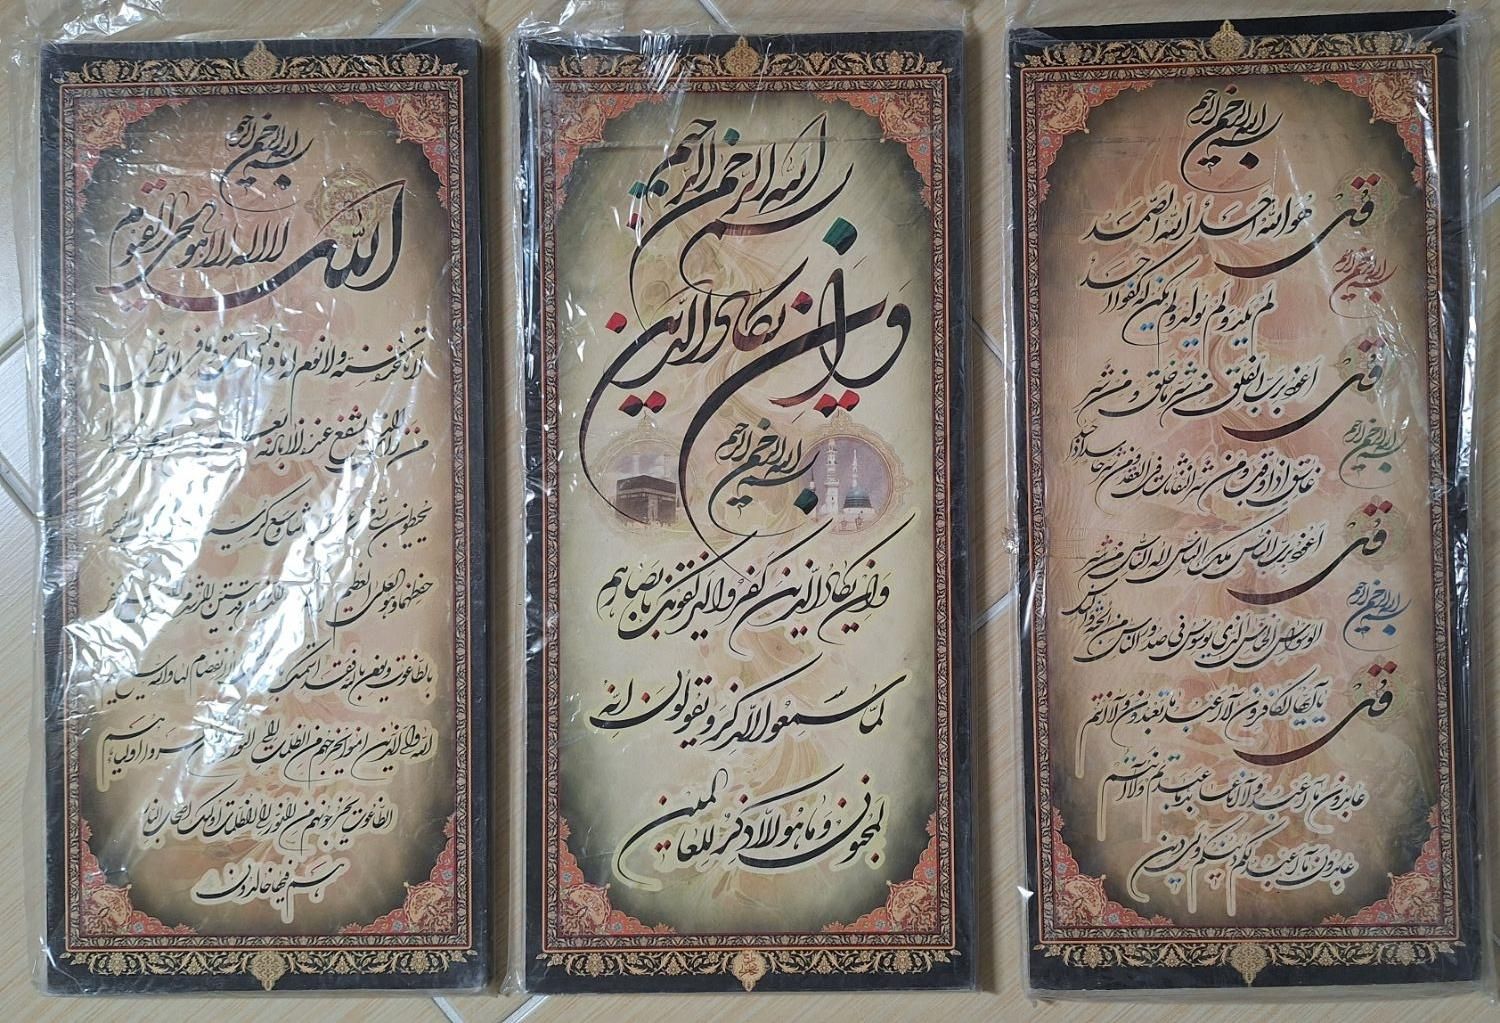 بسم الله الرحمن الرحيم
الله لا اله الا هو الحی القیوم
لا تأخذه سنة ولا نوم له ما فی السموات وما فی الارض
من ذا الذی یشفع عنده الا باذنه یعلم
یحیطون بشئ من علمه الا بما شاء وسع کرسیه
حفظهما وهو العلی العظیم لا اکراه فی الدین قد تبین الرشد من الغی فمن یکفر
بالطاغوت ویؤمن بالله فقد استمسک لا انفصام لها والله سمیع
الله ولی الذین امنوا یخرجهم من الظلمات الی النور والذین کفروا اولیاؤهم
الطاغوت یخرجونهم من النور الی الظلمات اولئک اصحاب النار
هم فیها خالدون
بسم الله الرحمن الرحيم
وان یکاد الذین
بسم الله الرحمن الرحيم
وان یکاد الذین کفروا لیزلقونک بابصارهم
لما سمعوا الذکر ویقولون انه
لمجنون وما هو الا ذکر للعالمین
بسم الله الرحمن الرحيم
قل هو الله احد الله الصمد
لم یلد ولم یولد ولم یکن له کفوا احد
بسم الله الرحمن الرحيم
قل اعوذ برب الفلق من شر ما خلق ومن شر
غاسق اذا وقب ومن شر النفاثات فی العقد ومن شر حاسد اذا حسد
بسم الله الرحمن الرحيم
قل اعوذ برب الناس ملک الناس اله الناس من شر
الوسواس الخناس الذی یوسوس فی صدور الناس من الجنة والناس
بسم الله الرحمن الرحيم
قل یا ایها الکافرون لا اعبد ما تعبدون ولا انتم
عابدون ما اعبد ولا انا عابد ما عبدتم ولا انتم
عابدون ما اعبد لکم دینکم ولی دین